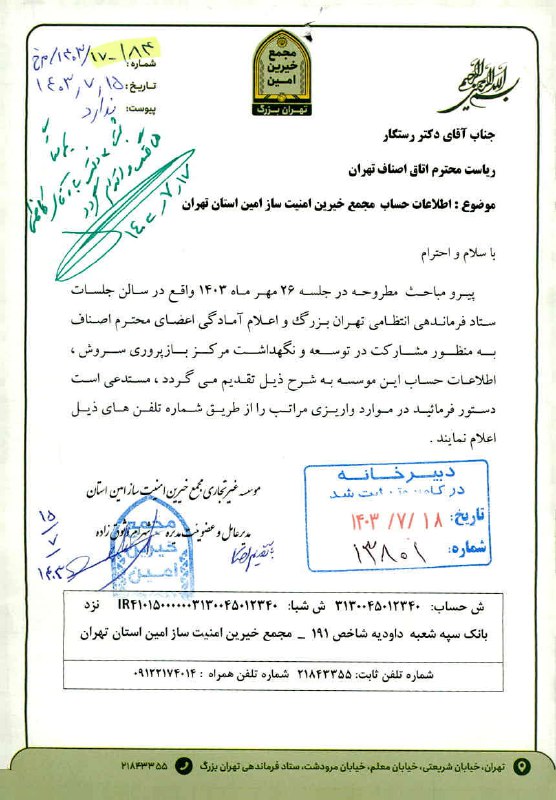 بسم الله الرحمن الرحیم
مجمع
خیرین
امین
تهران بزرگ
شماره: ۱۴۰۳/۱۷۰/۱۸۴/م‌خ
تاریخ: ۱۴۰۳,۷,۱۵
پیوست: ندارد
جناب آقای دکتر رستگار
ریاست محترم اتاق اصناف تهران
موضوع : اطلاعات حساب مجمع خیرین امنیت ساز امین استان تهران
۱۴۰۳,۷,۱۷
با سلام و احترام
پیرو مباحث مطروحه در جلسه ۲۶ مهر ماه ۱۴۰۳ واقع در سالن جلسات
ستاد فرماندهی انتظامی تهران بزرگ و اعلام آمادگی اعضای محترم اصناف
به منظور مشارکت در توسعه و نگهداشت مرکز بازپروری سروش ،
اطلاعات حساب این موسسه به شرح ذیل تقدیم می گردد ، مستدعی است
دستور فرمائید در موارد واریزی مراتب را از طریق شماره تلفن های ذیل
اعلام نمایند .
موسسه غیرتجاری مجمع خیرین امنیت ساز امین استان
مدیرعامل و عضو هیئت مدیره
مجمع
خیرین
امین
۱۵/۷/۱۴۰۳
دبیرخانه
تاریخ: ۱۴۰۳/۷/۱۸
شماره: ۱۳۸۰۱
ش حساب: ۳۱۳۰۰۴۵۰۱۲۳۴۰ ش شبا: IR۴۱۰۱۵۰۰۰۰۰۰۳۱۳۰۰۴۵۰۱۲۳۴۰ نزد
بانک سپه شعبه داودیه شاخص ۱۹۱ _ مجمع خیرین امنیت ساز امین استان تهران
شماره تلفن ثابت: ۲۱۸۴۳۳۵۵ شماره تلفن همراه : ۰۹۱۲۲۱۷۴۰۱۴
تهران، خیابان شریعتی، خیابان معلم، خیابان مرودشت، ستاد فرماندهی تهران بزرگ ۲۱۸۴۳۳۵۵